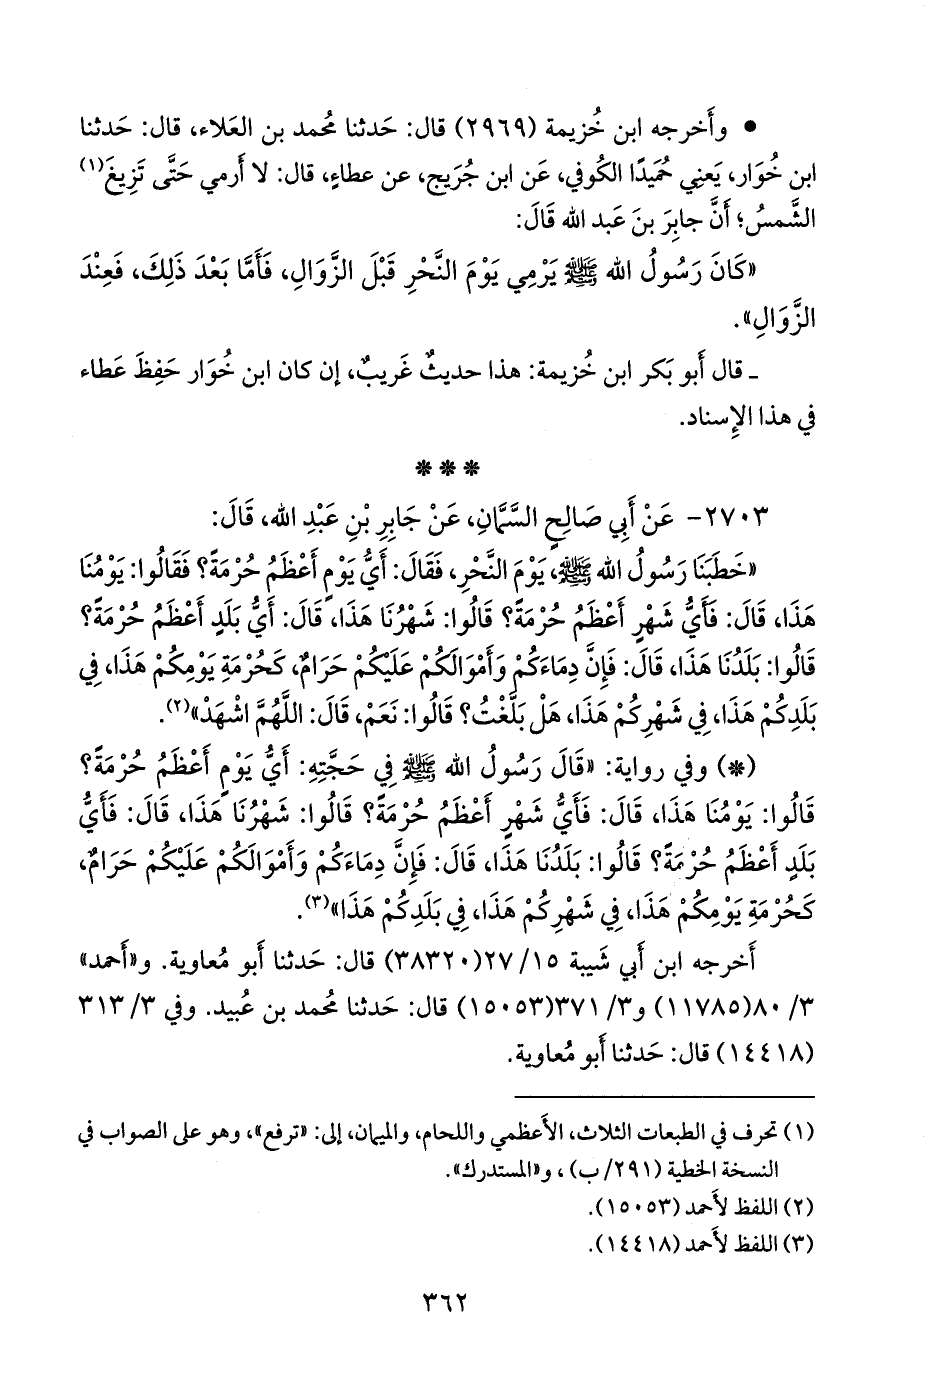 • وأَخرجه ابن خُزيمة (٢٩٦٩) قال: حَدثنا مُحمد بن العَلاء، قال: حَدثنا
ابن خُوَار، يَعنِي حُمَيدًا الكُوفي، عَن ابن جُرَيج، عن عطاءٍ، قال: لا أَرمي حَتَّى تَزِيغَ(١)
الشَّمسُ؛ أَنَّ جابِرَ بنَ عَبد الله قَالَ:
«كَانَ رَسُولُ الله ﷺ يَرْمِي يَوْمَ النَّحْرِ قَبْلَ الزَّوَالِ، فَأَمَّا بَعْدَ ذَلِكَ، فَعِنْدَ
الزَّوَالِ».
ـ قال أَبو بَكر ابن خُزيمة: هذا حديثٌ غَريبٌ، إن كان ابن خُوَار حَفِظَ عَطاء
في هذا الإِسناد.
* * *
٢٧٠٣- عَنْ أَبِي صَالِحٍ السَّمَّانِ، عَنْ جَابِرِ بْنِ عَبْدِ الله، قَالَ:
«خَطَبَنَا رَسُولُ الله ﷺ، يَوْمَ النَّحْرِ، فَقَالَ: أَيُّ يَوْمٍ أَعْظَمُ حُرْمَةً؟ فَقَالُوا: يَوْمُنَا
هَذَا، قَالَ: فَأَيُّ شَهْرٍ أَعْظَمُ حُرْمَةً؟ قَالُوا: شَهْرُنَا هَذَا، قَالَ: أَيُّ بَلَدٍ أَعْظَمُ حُرْمَةً؟
قَالُوا: بَلَدُنَا هَذَا، قَالَ: فَإِنَّ دِمَاءَكُمْ وَأَمْوَالَكُمْ عَلَيْكُمْ حَرَامٌ، كَحُرْمَةِ يَوْمِكُمْ هَذَا، فِي
بَلَدِكُمْ هَذَا، فِي شَهْرِكُمْ هَذَا، هَلْ بَلَّغْتُ؟ قَالُوا: نَعَمْ، قَالَ: اللَّهُمَّ اشْهَدْ»(٢).
(*) وفي رواية: «قَالَ رَسُولُ الله ﷺ فِي حَجَّتِهِ: أَيُّ يَوْمٍ أَعْظَمُ حُرْمَةً؟
قَالُوا: يَوْمُنَا هَذَا، قَالَ: فَأَيُّ شَهْرٍ أَعْظَمُ حُرْمَةً؟ قَالُوا: شَهْرُنَا هَذَا، قَالَ: فَأَيُّ
بَلَدٍ أَعْظَمُ حُرْمَةً؟ قَالُوا: بَلَدُنَا هَذَا، قَالَ: فَإِنَّ دِمَاءَكُمْ وَأَمْوَالَكُمْ عَلَيْكُمْ حَرَامٌ،
كَحُرْمَةِ يَوْمِكُمْ هَذَا، فِي شَهْرِكُمْ هَذَا، فِي بَلَدِكُمْ هَذَا»(٣).
أَخرجه ابن أَبي شَيبة ١٥/ ٢٧(٣٨٣٢٠) قال: حَدثنا أَبو مُعاوية. و«أَحمد»
٣/ ٨٠(١١٧٨٥) و٣/ ٣٧١(١٥٠٥٣) قال: حَدثنا مُحمد بن عُبيد. وفي ٣/ ٣١٣
(١٤٤١٨) قال: حَدثنا أَبو مُعاوية.
(١) تحرف في الطبعات الثلاث، الأَعظمي واللحام، والميمان، إلى: «ترفع»، وهو على الصواب في
النسخة الخطية (٢٩١/ ب)، و«المستدرك».
(٢) اللفظ لأَحمد (١٥٠٥٣).
(٣) اللفظ لأَحمد (١٤٤١٨).
٣٦٢